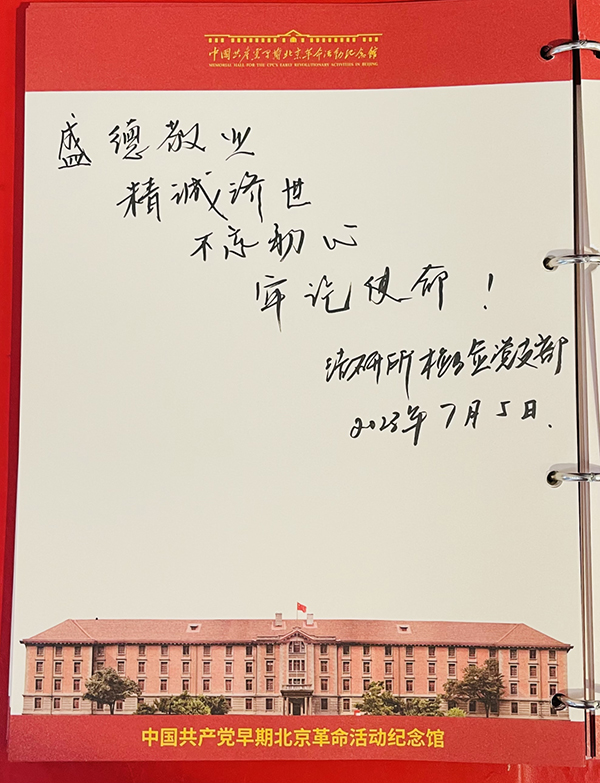 中国共产党早期北京革命活动纪念馆
MEMORIAL HALL FOR THE CPC'S EARLY REVOLUTIONARY ACTIVITIES IN BEIJING
盛德敬业
精诚济世
不忘初心
牢记使命！
结研所检验党支部
2023年7月5日.
中国共产党早期北京革命活动纪念馆